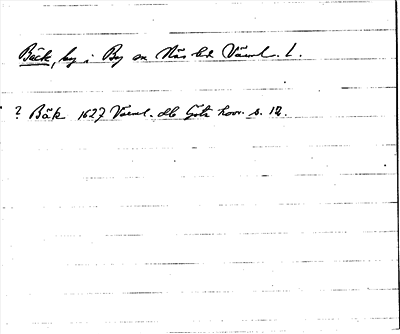 Bäck, by i By sn Näs hd Värml. l.
? Bäk 1627 Värml. dlb Göta hovr. s. 12.